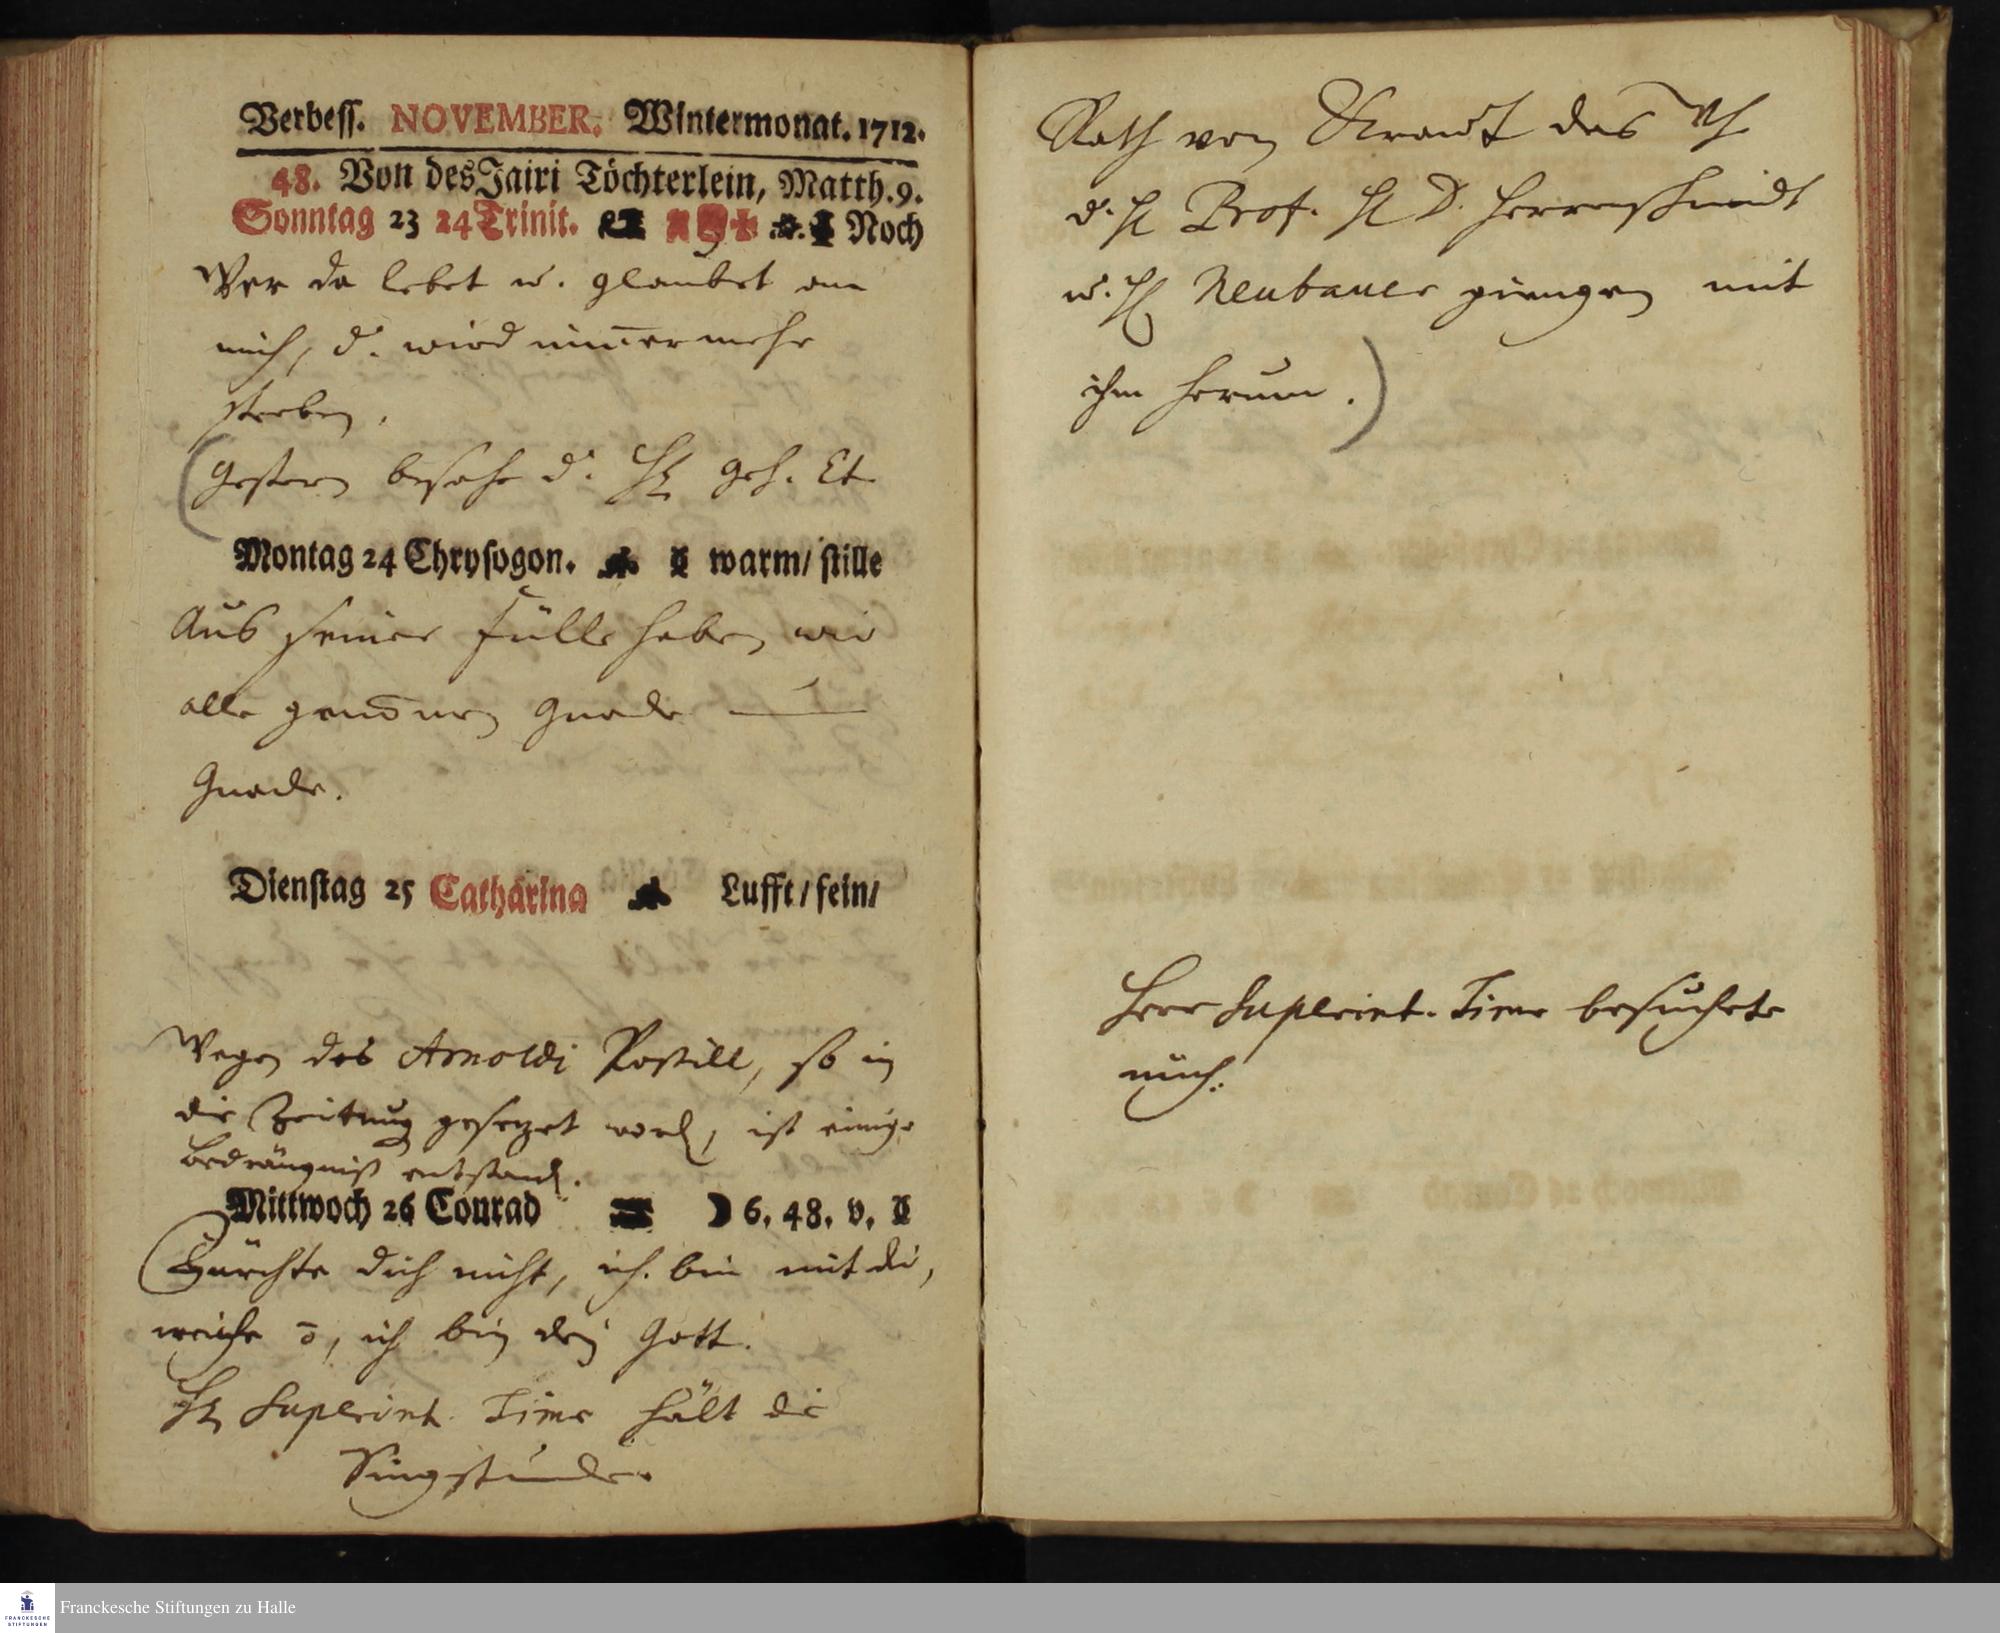 Verbess. NOVEMBER. Wintermonat. 1712.
48. Von des Jairi Töchterlein, Matth. 9.
Sonntag 23 24 Trinit. Noch
Wer da lebet u. glaubet an
mich, d. wird nim̅ermehr
sterben.
(Gestern besahe d. H geh. Et.
Montag 24 Chrysogon. warm/ stille
Aus seiner Fülle haben wir
alle genom̅en Gnade —
Gnade.
Dienstag 25 Catharina Lufft/ fein/
Wegen des Arnoldi Postill, so in
die Zeitung gesetzet word, ist einige
Bedrängniß entstand.
Mittwoch 26 Conrad 6. 48. v.
Fürchte dich nicht, ich bin mit dir,
weiche o̅, ich bin dein Gott.
H Supleint. Time hält die
Singstunde.
Rath von Kraut das
d. H Prof. H D. Herrnschmidt
u. H Neubauer giengen mit
ihm herum.)
Herr Supleint. Time besuchete
mich.
Franckesche Stiftungen zu Halle
FRANCKESCHE
STIFTUNGEN